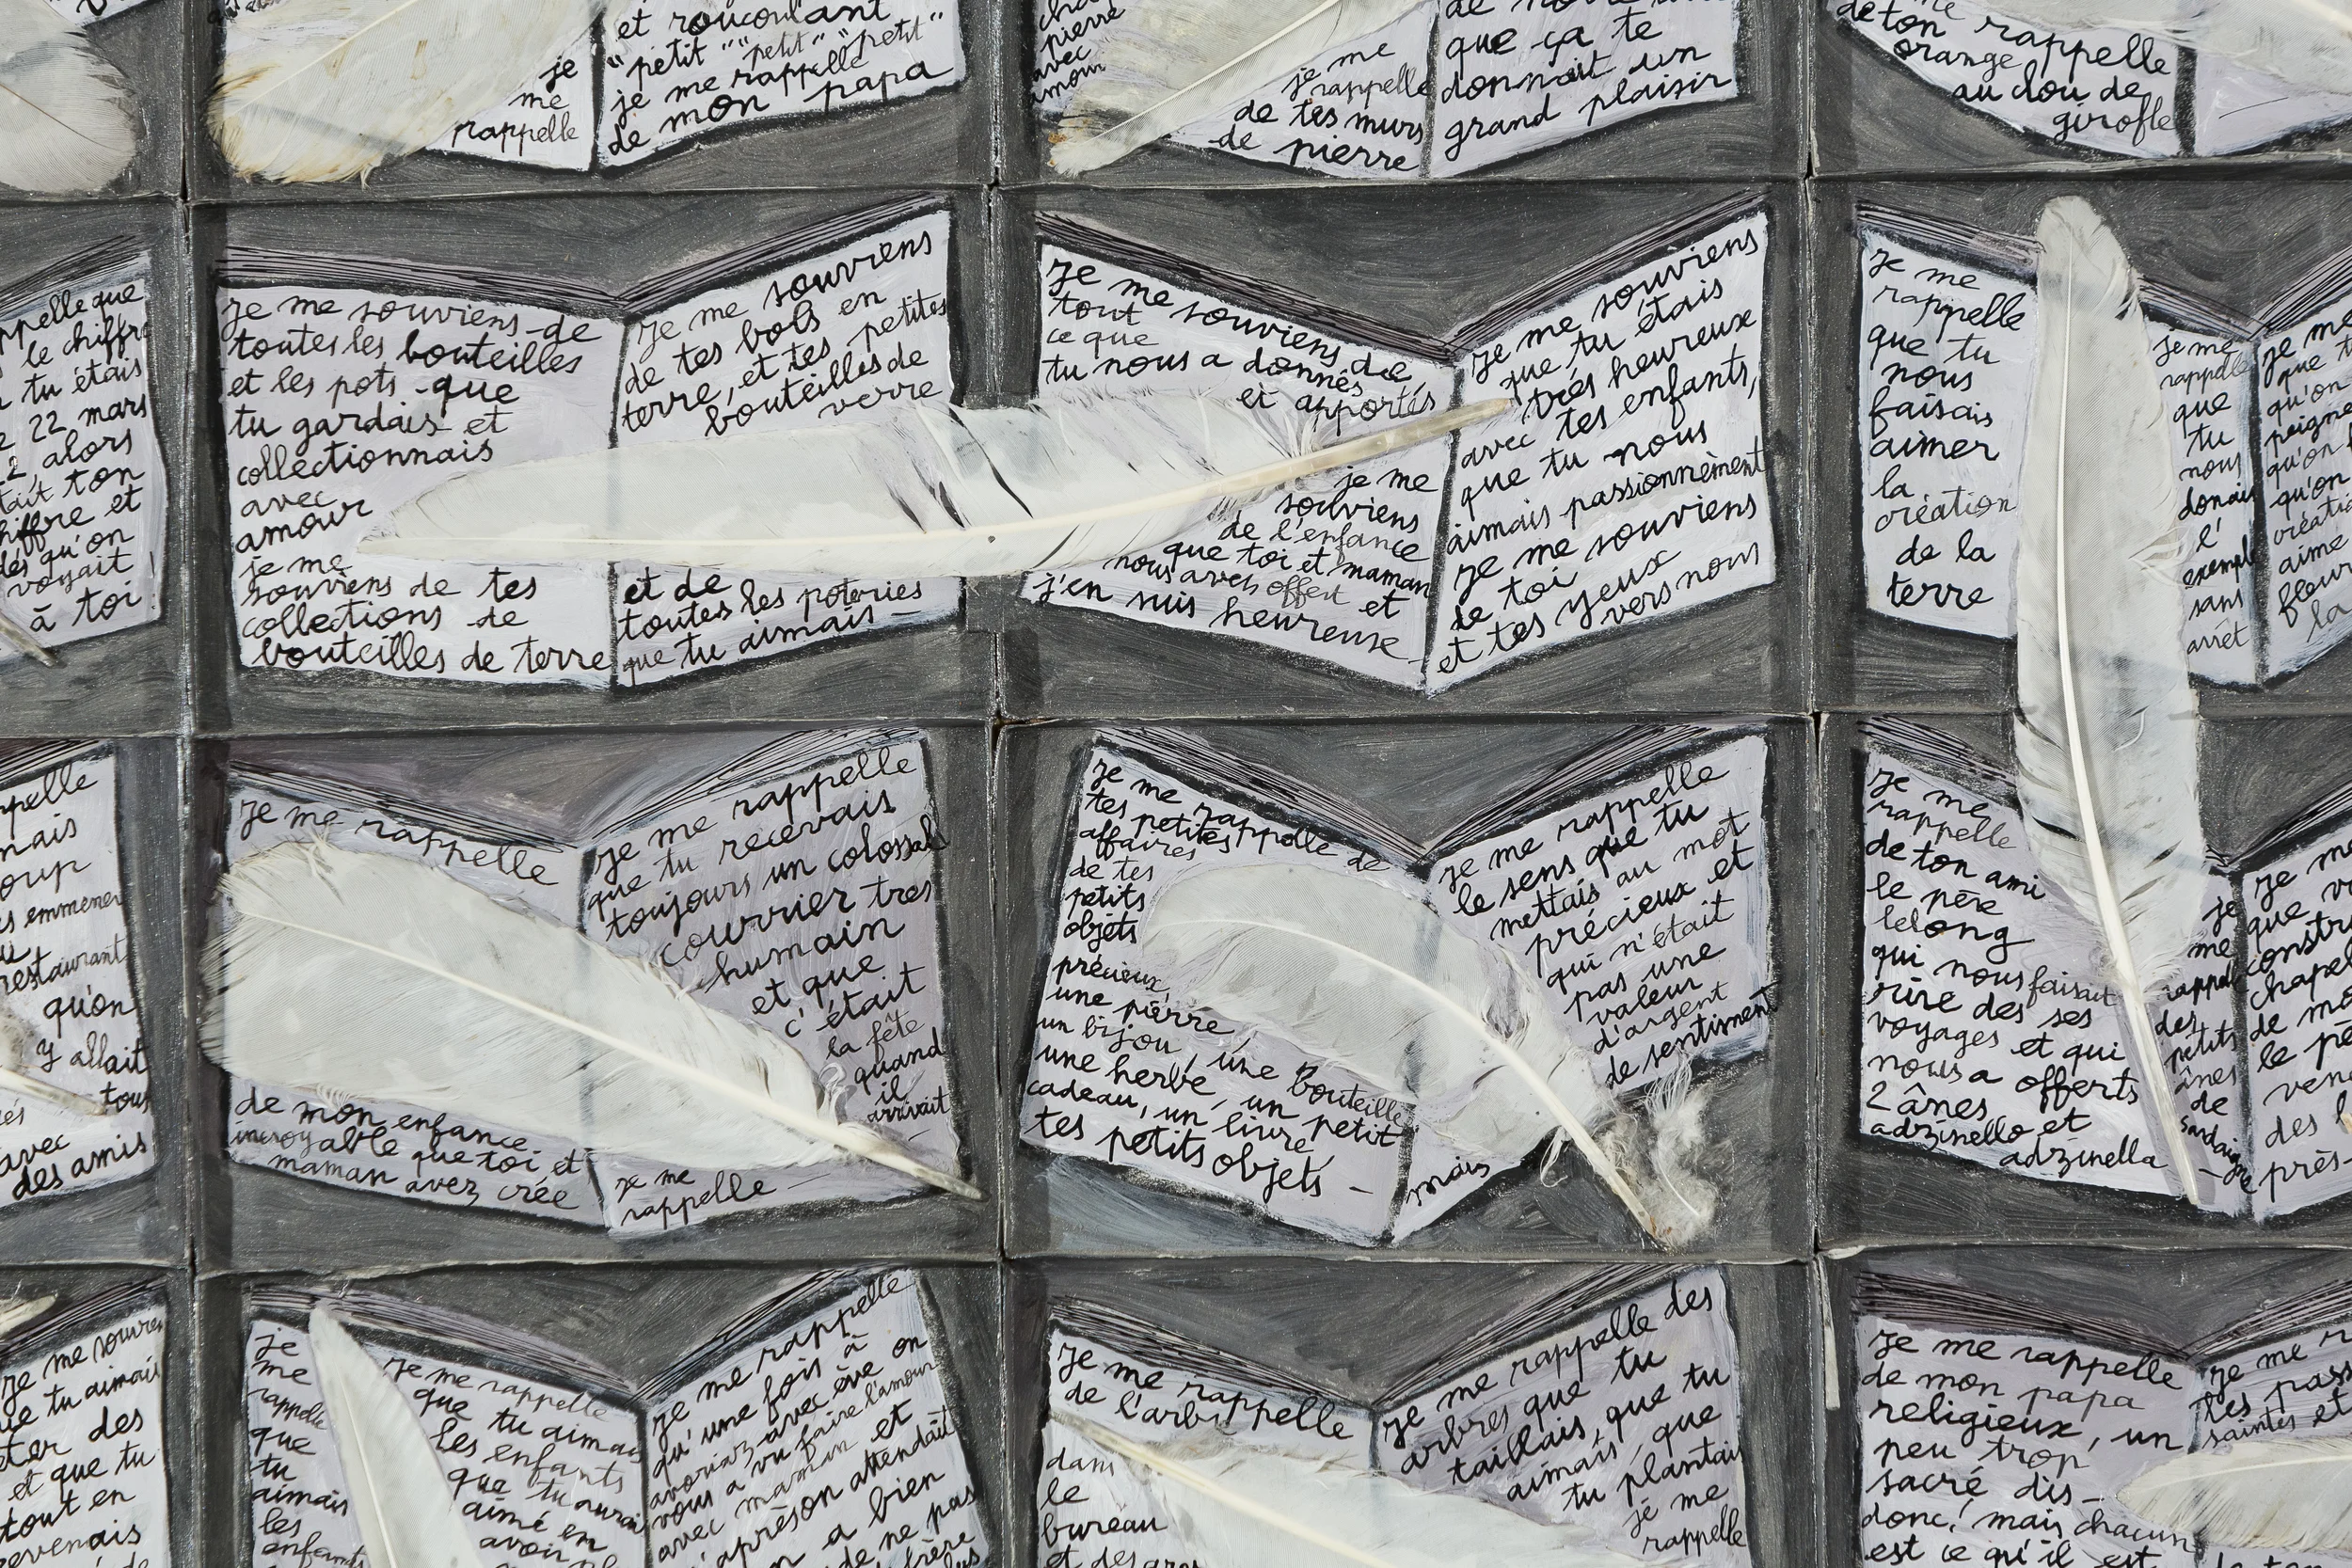 et roucoulant
"petit" "petit" "petit"
je me rappelle
de mon papa
je
me
rappelle
pierre
avec
amour
je me
rappelle
de tes murs
de pierre
que ça te
donnait un
grand plaisir
de ton rappelle
orange
au clou de
girofle
ppelle que
le chiffre
tu étais
22 mars
alors
tait ton
hiffre et
dés qu'on
voyait
à toi !
Je me souviens de
toutes les bouteilles
et les pots que
tu gardais et
collectionnais
avec
amour
je me
souviens de tes
collections de
bouteilles de terre
Je me souviens
de tes bols en
terre, et tes petites
bouteilles de
verre
et de
toutes les poteries
que tu aimais —
Je me souviens de
tout
ce que
tu nous a donnés
et apportés
je me
souviens
de l'enfance
que toi et maman
nous avez offert et
j'en suis heureuse
Je me souviens
que tu étais
très heureux
avec tes enfants,
que tu nous
aimais passionnément
Je me souviens
de toi
et tes yeux
vers nous
Je me
rappelle
que tu
nous
faisais
aimer
la
création
de la
terre
je me
rappelle
que
tu
nous
donais
l'
exemple
sans
arrêt
je me
que
qu'on
peigne
qu'on
qu'on
créatio
aime
fleur
la
ppelle
mais
oup
emmener
restaurant
qu'on
y allait
tous
avec
des amis
Je me rappelle
de mon enfance
incroyable que toi et
maman avez crée
Je me rappelle
que tu recevais
toujours un colossal
courrier tres
humain
et que
c'était
la fête
quand
il
arrivait
je me
rappelle —
Je me rappelle de
tes petites
affaires
de tes
petits
objets
précieux
une pierre
un bijou, une bouteille
une herbe, un petit
cadeau, un livre,
tes petits objets —
Je me rappelle
le sens que tu
mettais au mot
précieux et
qui n'était
pas une
valeur
d'argent
de sentiment
mais
Je me
rappelle
de ton ami
le père
lelong
qui nous faisait
rire des ses
voyages et qui
nous a offerts
2 ânes
adzinello et
adzinella
je
me
rappel
des
petits
ânes
de
Sardaigne
Je me
que
constr
chapel
de mo
le pè
ven
des
près-
Je me souvie
que tu aimais
ter des
et que tu
tout en
revenais
je
me
rappelle
que
tu
aimais
les
enfants
Je me rappelle
que tu aimais
les enfants
que tu aurais
aimé en
avoir
Je me rappelle
qu'une fois à
avoriaz avec ève on
vous a vu faire l'amour
avec maman et
qu'après on attendait
a bien
de ne pas
frère
Je me rappelle
de l'arbre
dans
le
bureau
et des
Je me rappelle des
arbres que tu
taillais, que tu
aimais, que
tu plantais
je me
rappelle
Je me rappelle
de mon papa
religieux, un
peu trop
sacré dis-
donc! mais chacun
est ce qu'il est
Je me
les pass
saintes et